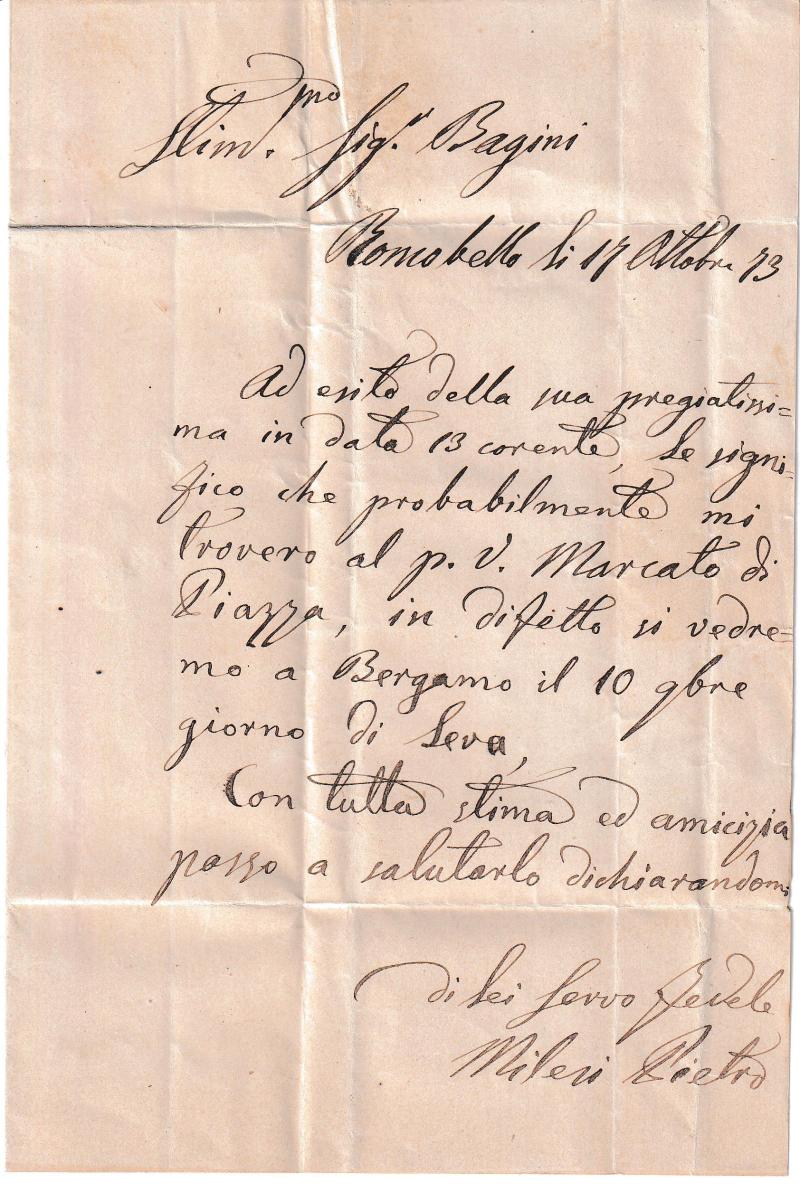 Stim.mo Sig.r Bagini
Roncobello li 17 Ottobre 73
Ad esito della sua pregiatissi=
ma in data 13 corente, le signi=
fico che probabilmente mi
trovero al p. V. Marcato di
Piazza, in difetto si vedre=
mo a Bergamo il 10 9bre
giorno di Leva,
Con tutta stima ed amicizia
passo a salutarlo dichiarandomi
di Lei Servo Fedele
Milesi Pietro